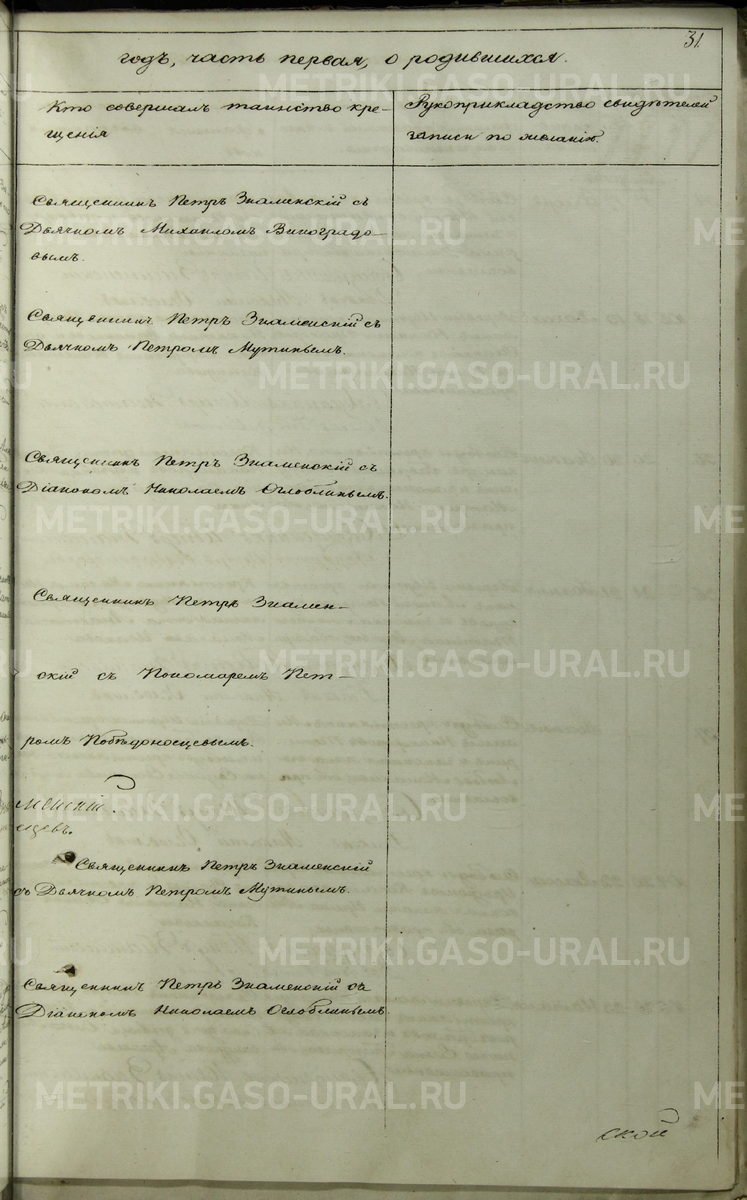 31.
годъ, часть первая, о родившихся.
Кто совершалъ таинство кре-
щенія
Рукоприкладство свидѣтелей
записи по желанію.
Священникъ Петръ Знаменскій съ
Дьячкомъ Михаиломъ Виноградо-
вымъ.
Священникъ Петръ Знаменскій съ
Дьячкомъ Петромъ Мутинымъ.
Священникъ Петръ Знаменскій съ
Діакономъ Николаемъ Оглоблинымъ.
Священникъ Петръ Знамен-
скій съ Пономаремъ Пет-
ромъ Побѣдоносцевымъ.
менскій
цевъ.
Священникъ Петръ Знаменскій
съ Дьячкомъ Петромъ Мутинымъ.
Священникъ Петръ Знаменскій съ
Діакономъ Николаемъ Оглоблинымъ
ской
METRIKI.GASO-URAL.RU